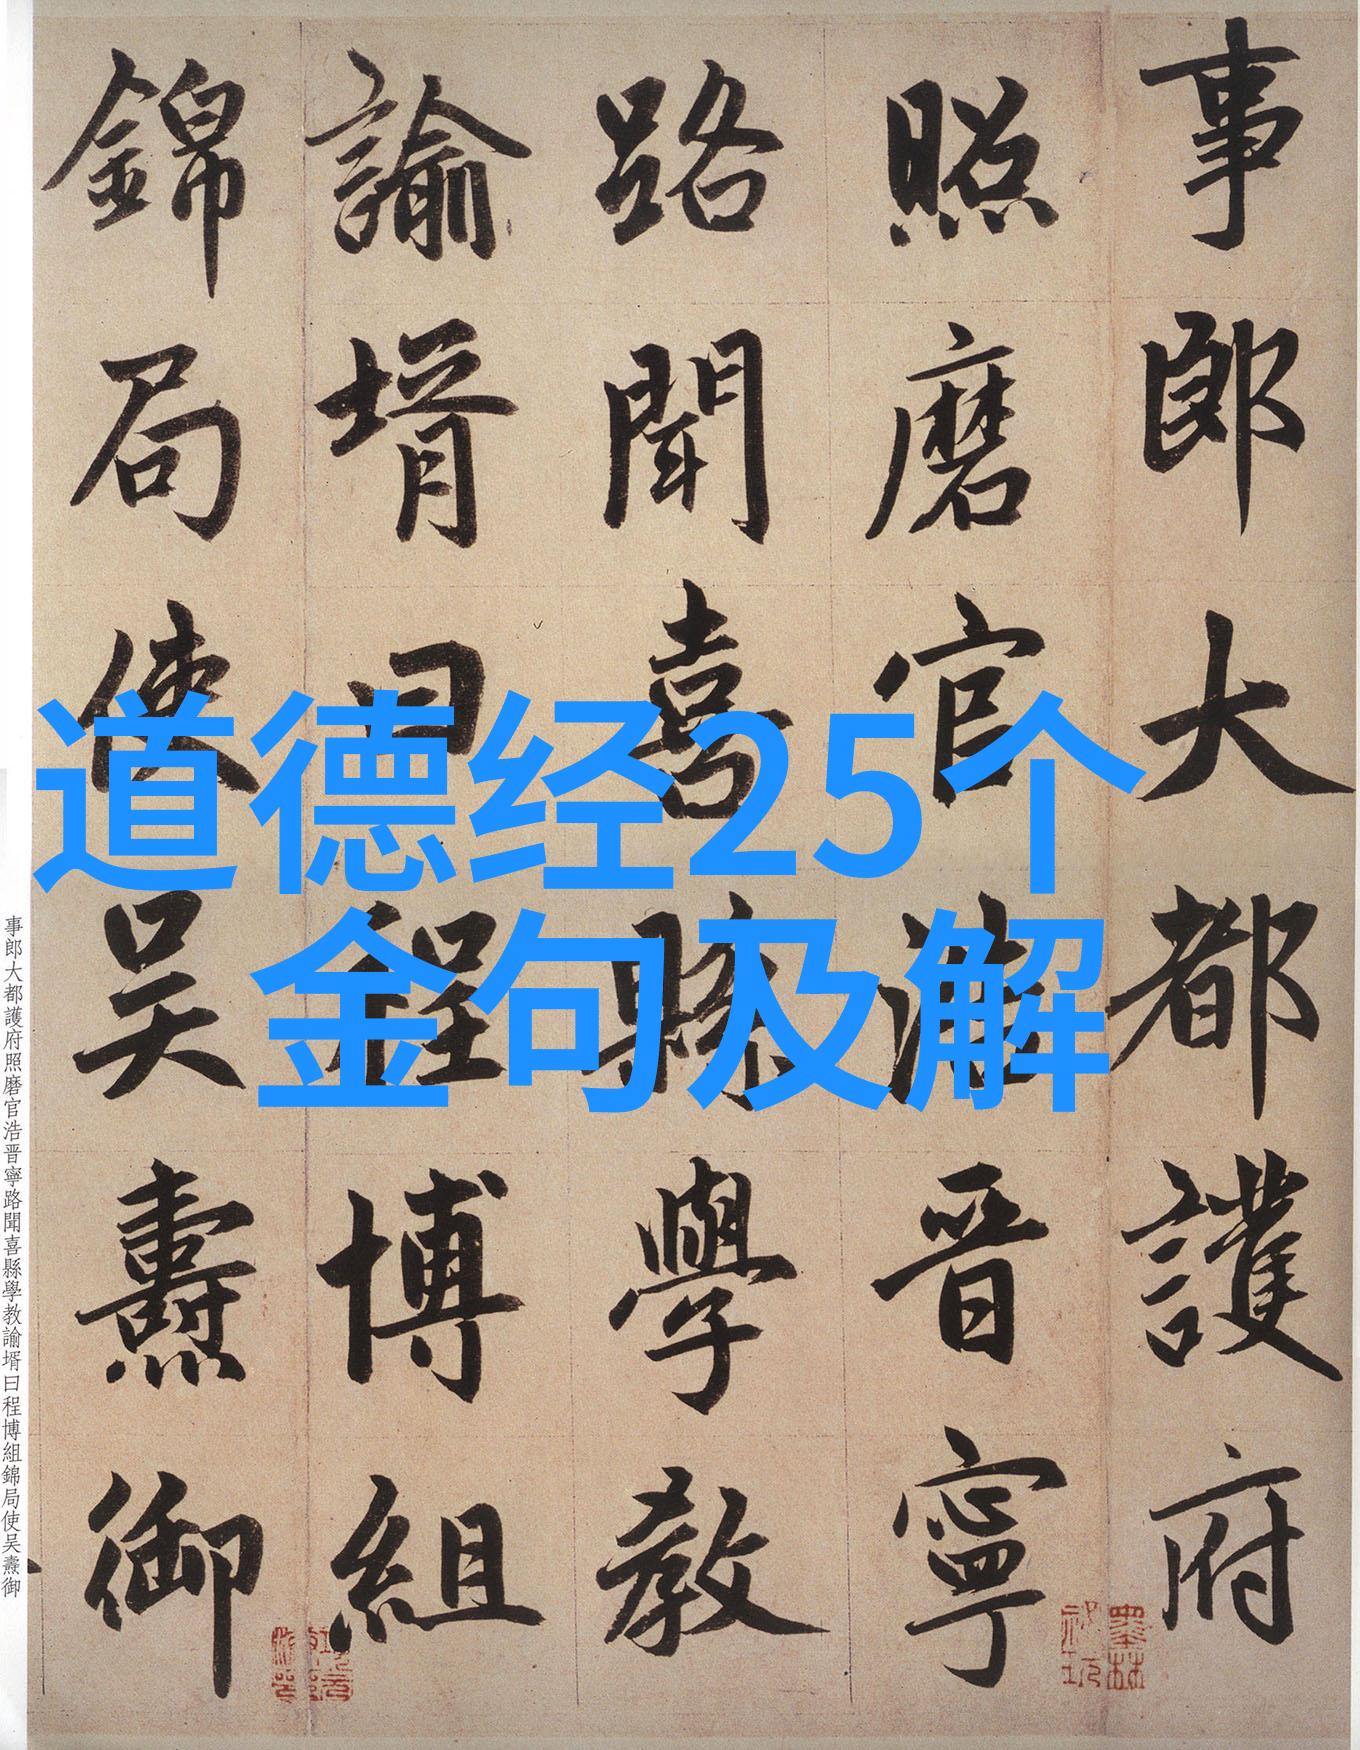 事郎大都護府
照磨官浩晋寧
路聞喜縣學教
諭壻曰程博組
錦局使吴燾御
道德经25个
金句及解
事郎大都護府照磨官浩晋寧路聞喜縣學教諭壻曰程博組錦局使吴燾御